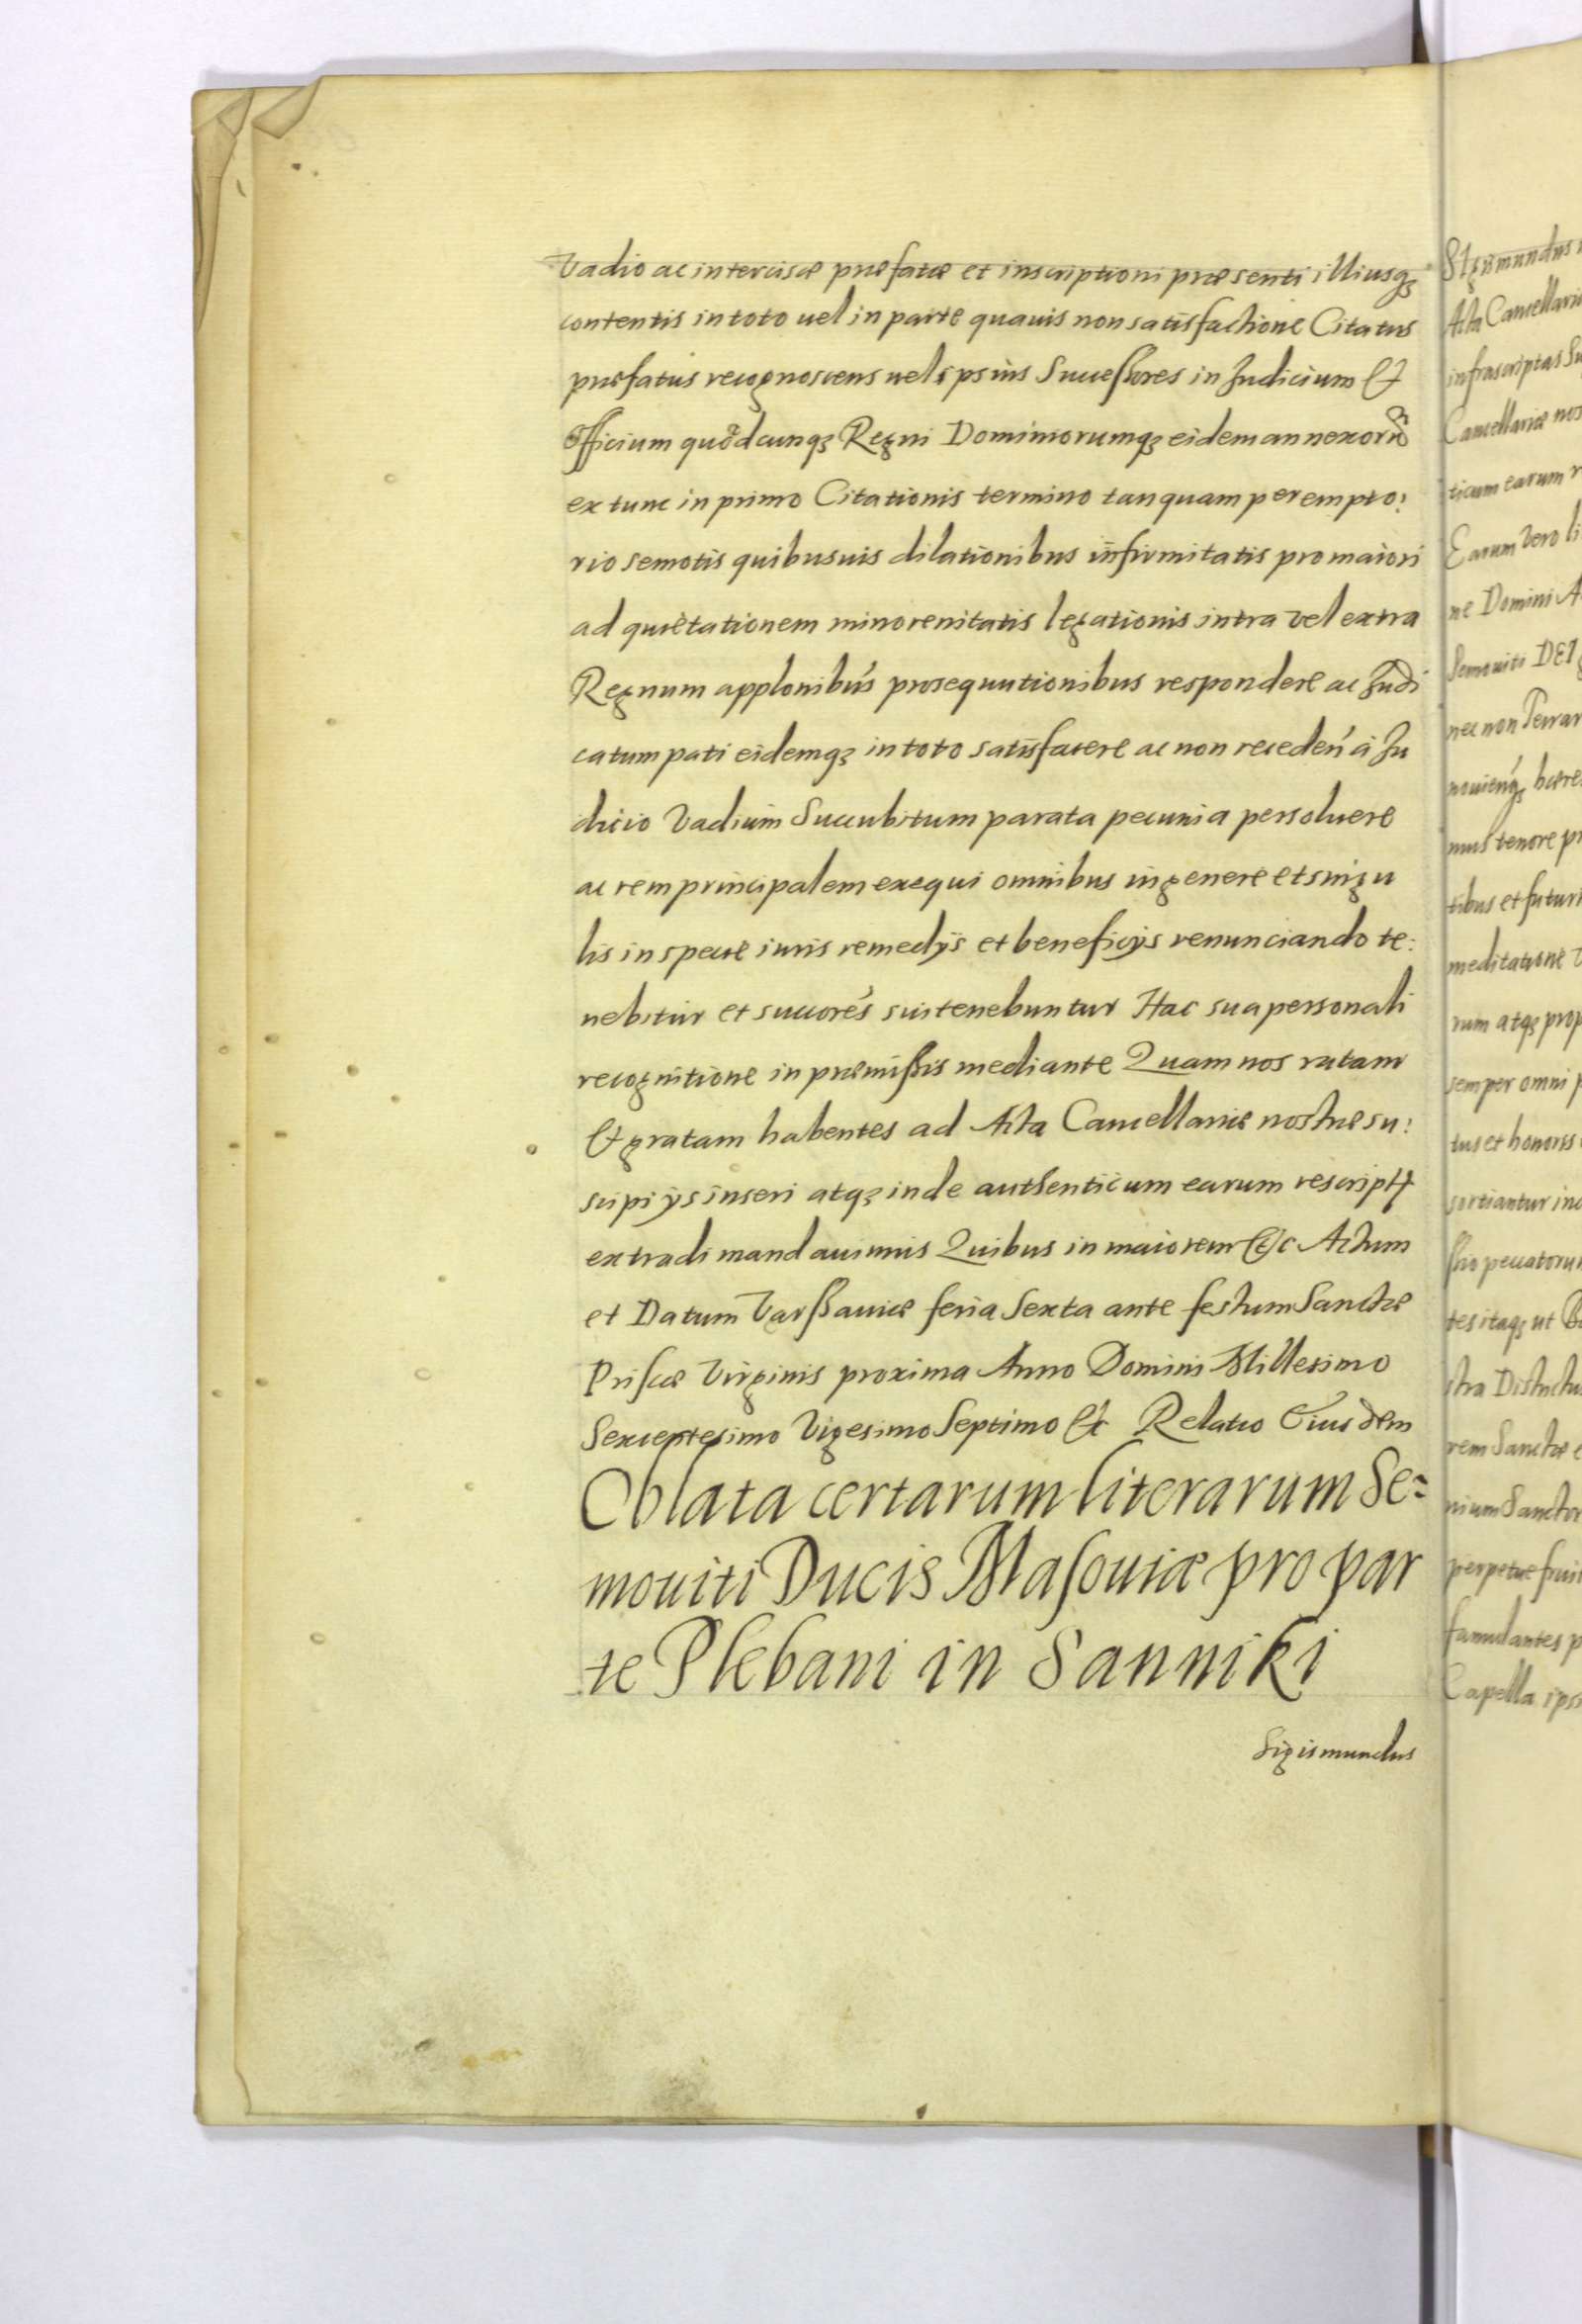 Vadio ac intercisæ præfatæ et inscriptioni præsenti illiusqꝫ
contentis in toto uel in parte quauis non satisfactione Citatus
præfatus recognoscens uel ipsius Successores in Judicium Et
Officium quodcunqꝫ Regni Dominiorumqꝫ eidem annexorũ
ex tunc in primo Citationis termino tanquam perempto:
rio semotis quibusuis dilationibus infirmitatis pro maiori
ad quietationem minorenitatis legationis intra vel extra
Regnum applonibus prosequutionibus respondere ac Judi
catum pati eidemqꝫ in toto satisfacere ac non receden̍ à Ju
dicio Vadium Succubitum parata pecunia persoluere
ac rem principalem exequi omnibus in genere et singu
lis in specie iuris remedijs et beneficijs renunciando te:
nebitur et succores sui tenebuntur Hac sua personali
recognitione in præmissis mediante Quam nos ratam
Et gratam habentes ad Acta Cancellariæ nostræ su:
scipi ijs inseri atqꝫ inde authenticum earum rescriptũ
extradi mandauimus Quibus in maiorem Etc Actum
et Datum Varssauiæ feria Sexta ante festum Sanctæ
Priscæ Virginis proxima Anno Domini Millesimo
Sexcentesimo Vigesimo Septimo Etc Relatio Eiusdem
Oblata certarum literarum Se=
mouiti Ducis Masouiæ pro par
te Plebani in Sanniki
Sigismundus
Sigismundus
Acta Cancellari
infrascriptas Su
Cancellariæ nos
ticum earum r
Earum Vero li
ne Domini A
Semouiti DEI g
nec non Terrar
nouienqꝫ hære
mus tenore pr
tibus et futuri
meditatione v
rum atqꝫ prop
semper omni p
tus et honoris
sortiantur inc
ssio peccatorum
tes itaqꝫ ut B
stra Districtu
rem Sanctæ e
nium Sanctor
perpetue frui
famulantes p
Capella ips